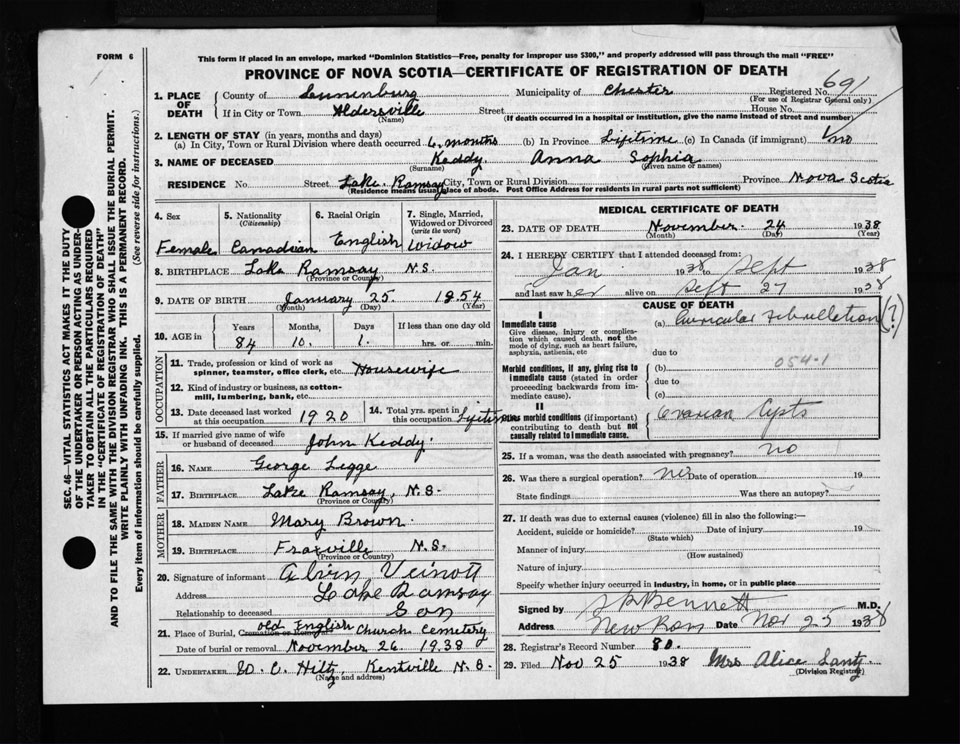 FORM 6
This form if placed in an envelope, marked "Dominion Statistics—Free, penalty for improper use $300," and properly addressed will pass through the mail "FREE"
PROVINCE OF NOVA SCOTIA—CERTIFICATE OF REGISTRATION OF DEATH
691
1. PLACE OF DEATH
County of Lunenburg Municipality of Chester Registered No.
(For use of Registrar General only)
If in City or Town Aldersville Street House No.
(Name) (If death occurred in a hospital or institution, give the name instead of street and number)
2. LENGTH OF STAY (in years, months and days)
(a) In City, Town or Rural Division where death occurred 6 months (b) In Province Lifetime (c) In Canada (if immigrant) no
3. NAME OF DECEASED Keddy Anna Sophia
(Surname) (Given name or names)
RESIDENCE No. Street Lake Ramsay City, Town or Rural Division Province Nova Scotia
(Residence means usual place of abode. Post Office Address for residents in rural parts not sufficient)
SEC. 46—VITAL STATISTICS ACT MAKES IT THE DUTY
OF THE UNDERTAKER OR PERSON ACTING AS UNDER-
TAKER TO OBTAIN ALL THE PARTICULARS REQUIRED
IN THE "CERTIFICATE OF REGISTRATION OF DEATH"
AND TO FILE THE SAME WITH THE DIVISION REGISTRAR WHO SHALL ISSUE THE BURIAL PERMIT.
WRITE PLAINLY WITH UNFADING INK. THIS IS A PERMANENT RECORD.
Every item of information should be carefully supplied. (See reverse side for instructions.)
4. Sex 5. Nationality (Citizenship) 6. Racial Origin 7. Single, Married, Widowed or Divorced (Write the word)
Female Canadian English Widow
8. BIRTHPLACE Lake Ramsay N.S.
(Province or Country)
9. DATE OF BIRTH January 25. 1854
(Month) (Day) (Year)
10. AGE in Years Months Days If less than one day old
84 10. 1. hrs. or min.
OCCUPATION
11. Trade, profession or kind of work as spinner, teamster, office clerk, etc. Housewife
12. Kind of industry or business, as cotton-mill, lumbering, bank, etc.
13. Date deceased last worked at this occupation 1920 14. Total yrs. spent in this occupation Lifetime
15. If married give name of wife or husband of deceased John Keddy.
FATHER
16. NAME George Legge
17. BIRTHPLACE Lake Ramsay, N.S.
(Province or Country)
MOTHER
18. MAIDEN NAME Mary Brown.
19. BIRTHPLACE Fraxville N.S.
(Province or Country)
20. Signature of informant Alvin Veinott
Address Lake Ramsay
Relationship to deceased Son
21. Place of Burial, Cremation or Removal Old English Church Cemetery
Date of burial or removal November 26. 1938
22. UNDERTAKER W. C. Hiltz, Kentville N.S.
(Name and address)
MEDICAL CERTIFICATE OF DEATH
23. DATE OF DEATH November 24 1938
(Month) (Day) (Year)
24. I HEREBY CERTIFY that I attended deceased from:
Jan 1938 to Sept 1938
and last saw her alive on Sept 27 1938
CAUSE OF DEATH
I
Immediate cause
Give disease, injury or complication which caused death, not the mode of dying, such as heart failure, asphyxia, asthenia, etc
(a) Auricular Fibrillation (?)
due to
Morbid conditions, if any, giving rise to immediate cause (stated in order proceeding backwards from immediate cause).
(b) 054-1
due to
(c)
II
Other morbid conditions (if important) contributing to death but not causally related to immediate cause.
Ovarian Cysts
25. If a woman, was the death associated with pregnancy? no
26. Was there a surgical operation? no Date of operation 19
State findings Was there an autopsy?
27. If death was due to external causes (violence) fill in also the following:—
Accident, suicide or homicide? Date of injury 19
(State which)
Manner of injury
(How sustained)
Nature of injury
Specify whether injury occurred in industry, in home, or in public place
Signed by Bennett M.D.
Address New Ross Date Nov 25 1938
28. Registrar's Record Number 80.
29. Filed Nov 25 1938 Mrs Alice Lantz
(Division Registrar)